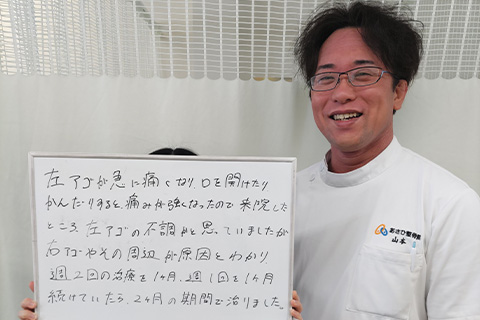 左アゴが急に痛くなり、口を開けたり
かんだりすると、痛みが強くなったので来院した
ところ、左アゴの不調かと思っていましたが
右アゴやその周辺が原因とわかり
週2回の治療を1ヶ月、週1回を1ヶ月
続けていたら、2ヶ月の期間で治りました。
あさひ整骨院
山本